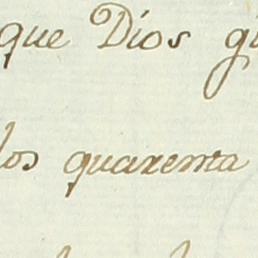 que Dios
los quarenta